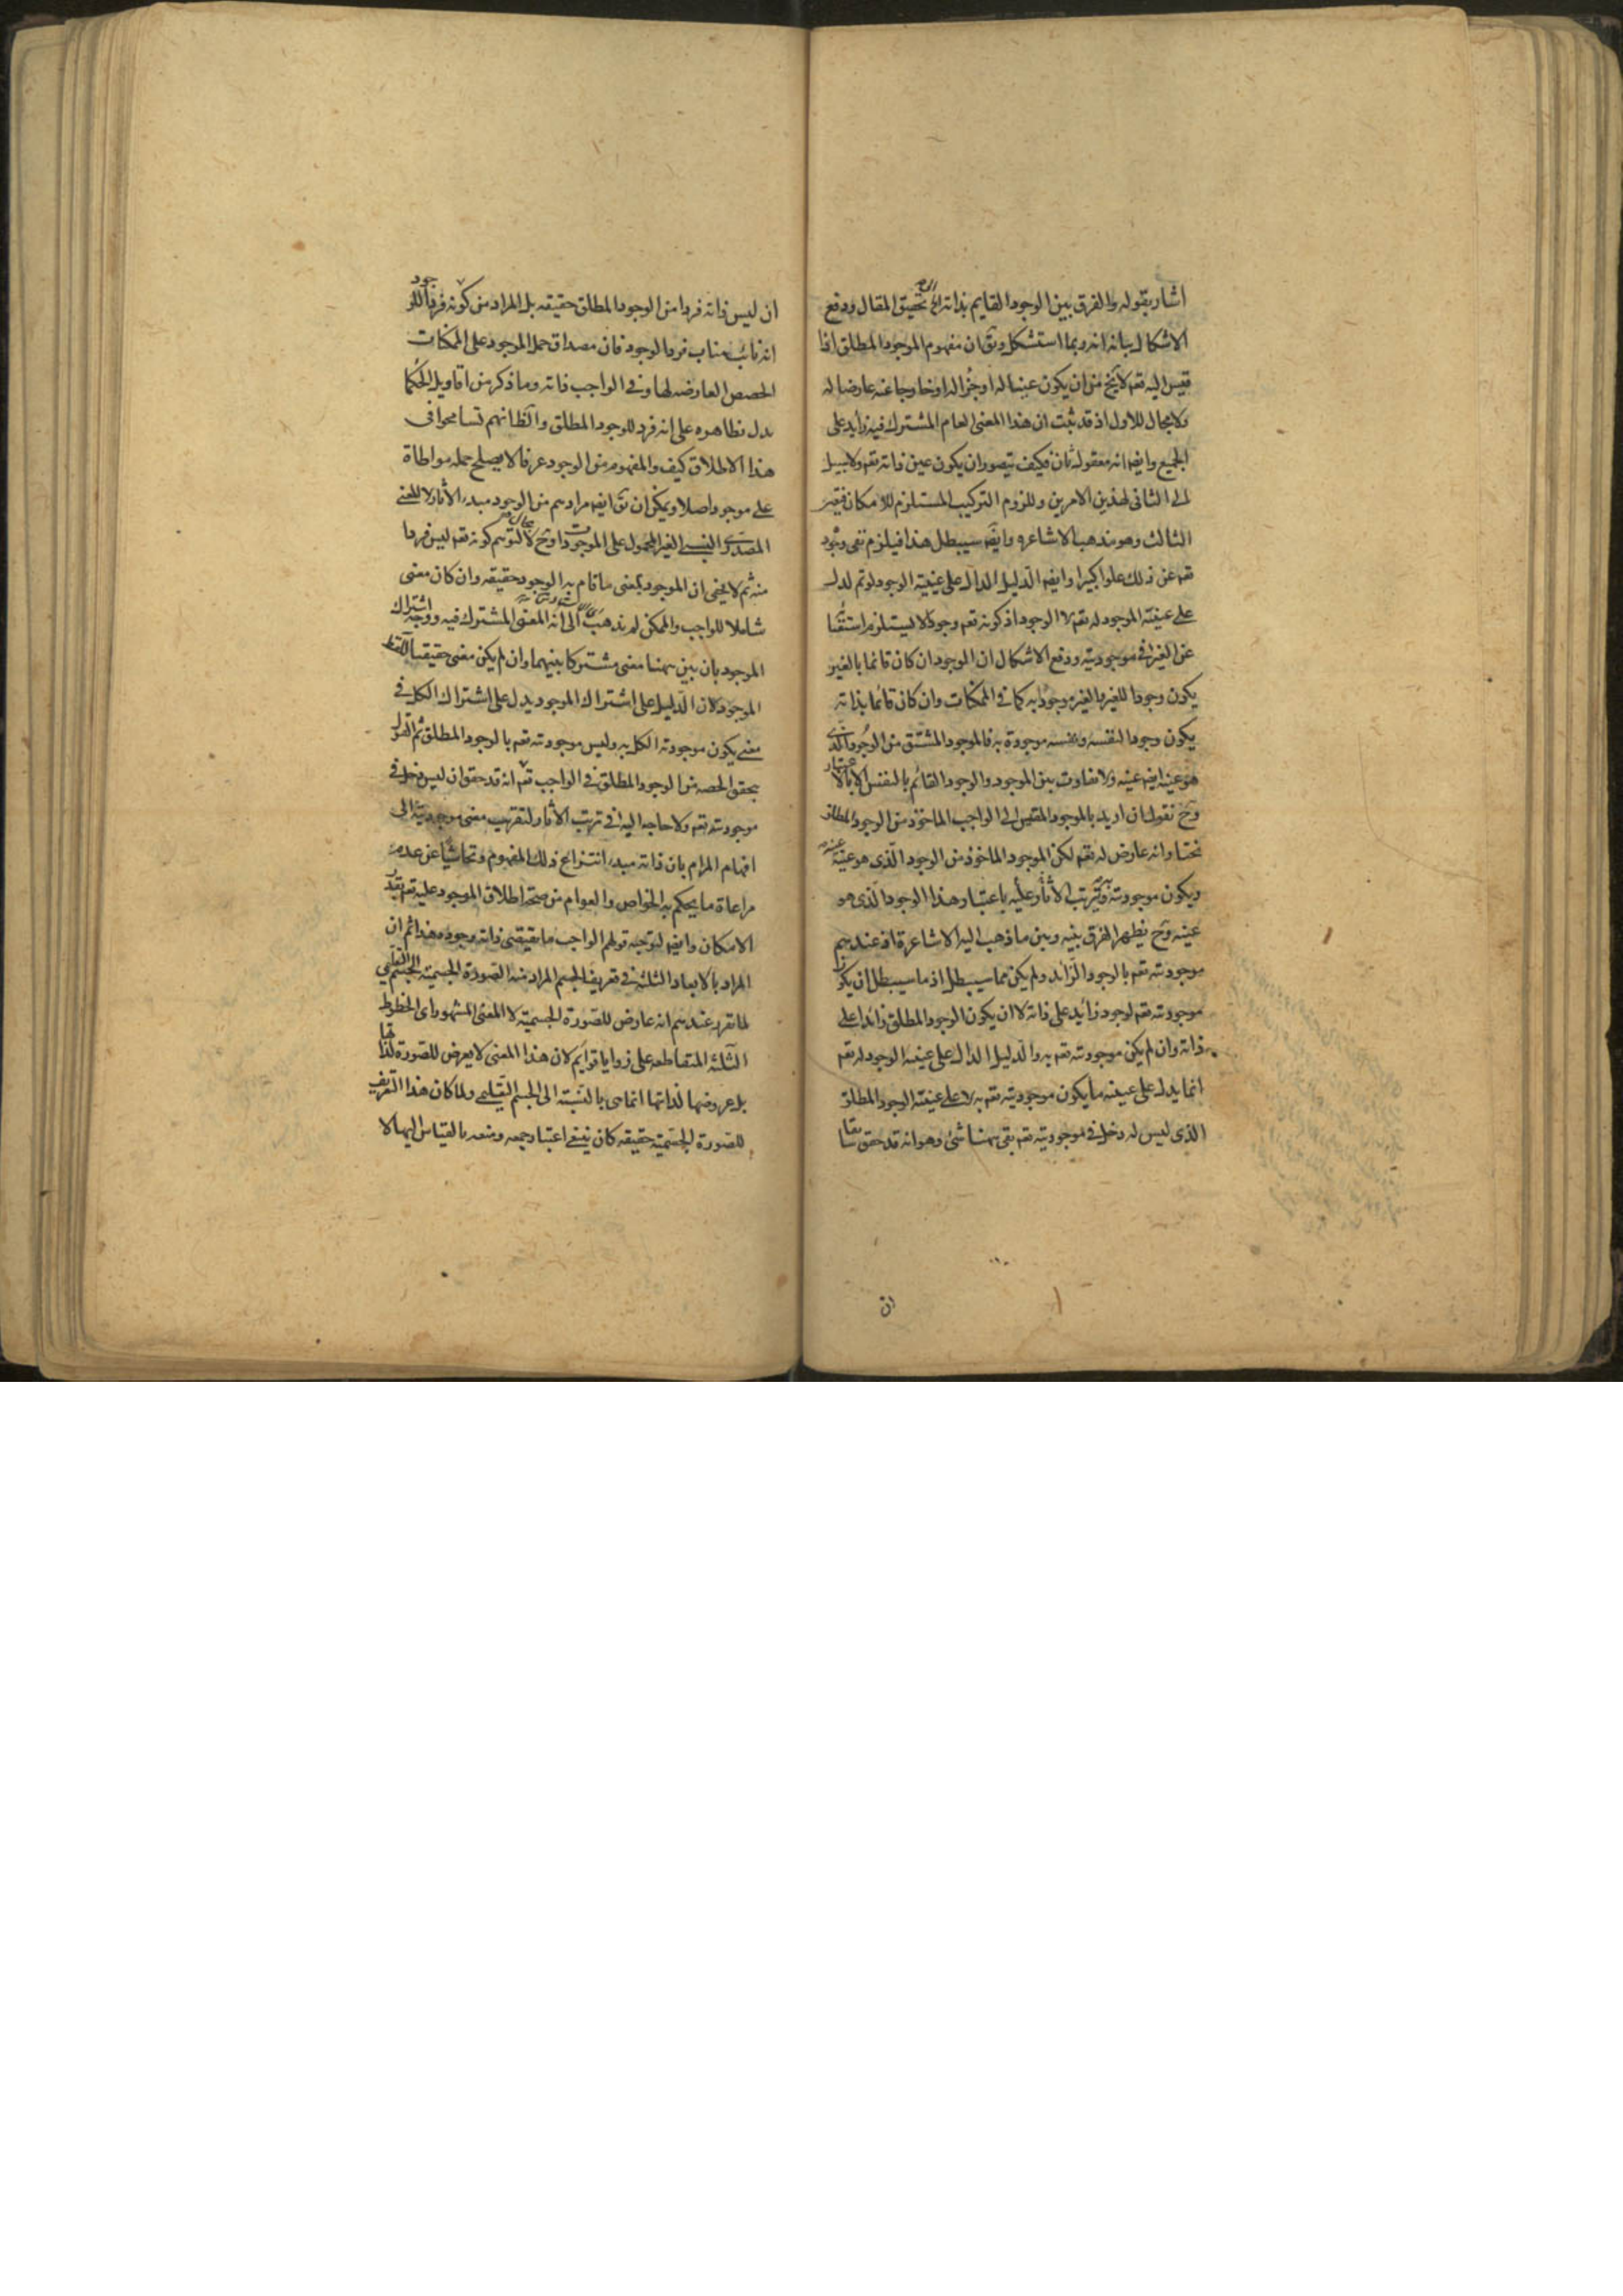 اشار بقوله والفرق بين الوجود القايم بذاته الخ الى تحقيق المقال ودفع
الاشكال بيانه انه ربما استشكل ويق ان مفهوم الموجود المطلق اذا
قيس اليه تعم لا يخ من ان يكون عينا له او جزءا له او خارجا عنه عارضا له
ولا مجال للاول اذ قد ثبت ان هذا المعنى العام المشترك فيه زايد على
الجميع وايضا انه معقول ثان فكيف يتصور ان يكون عين ذاته تعم ولا سبيل
الى الثانى لهذين الامرين وللزوم التركيب المستلزم للامكان فيتعين
الثالث وهو مذهب الاشاعره وايضا سيبطل هذا فيلزم نفى وجود
تعم عن ذلك علوا كبيرا وايضا الدليل الدال على عينية الوجود لو تم لدل
على عينية الموجود له تعم لا الوجود اذ كونه تعم وجودا لا يستلزم استغنا
عن الغير فى موجوديته ودفع الاشكال ان الموجود ان كان قائما بالغير
يكون وجودا للغير والغير موجودا به كما فى الممكنات وان كان قائما بذاته
يكون وجودا لنفسه ونفسه موجودة به فالموجود المشتق من الوجود الذى
هو عينه ايضا عينه ولا تفاوت بين الموجود والوجود القائم بالنفس الا بالاعتبار
وح نقول ان اريد بالموجود المقيس الى الواجب الماخوذ من الوجود المطلق
نختار انه عارض له تعم لكن الموجود الماخوذ من الوجود الذى هو عينه عينه
ويكون موجوديته وترتب الآثار عليه باعتبار هذا الوجود الذى هو
عينه وح يظهر الفرق بينه وبين ما ذهب اليه الاشاعرة اذ عندهم
موجوديته تعم بالوجود الزائد ولم يكن مما سيبطل اذ ما سيبطل ان يكون
موجوديته تعم لوجود زائد على ذاته لا ان يكون الوجود المطلق زائدا على
ذاته وان لم يكن موجوديته تعم به والدليل الدال على عينية الوجود له تعم
انما يدل على عينية ما يكون موجوديته تعم به لا على عينية الوجود المطلق
الذى ليس له دخل فى موجوديته تعم بقى ههنا شئ وهو انه قد حقق سابقا
ان
ان ليس ذاته فردا من الوجود المطلق حقيقه بل المراد من كونه فردا للوجود
انه نائب مناب فرد الوجود فان مصداق حمل الموجود على الممكنات
الحصص العارضه لها وفى الواجب ذاته وما ذكر من اقاويل الحكما
يدل بظاهره على انه فرد للوجود المطلق والظ انهم تسامحوا فى
هذا الاطلاق كيف والمفهوم من الوجود عرفا لا يصلح حمله مواطاة
على موجود اصلا ويمكن ان يق ايضا مرادهم من الوجود مبدء الآثار لا المعنى
المصدرى النسبى الغير المحمول على الموجودات وح لا مجال لتوهم كونه تعم ليس فردا
منه ثم لا يخفى ان الموجود بمعنى ما قام به الوجود حقيقه وان كان معنى
شاملا للواجب والممكن لم يذهب الى انه المعنى المشترك فيه ووجه اشتراك
الموجود بان بين ههنا معنى مشتركا بينهما وان لم يكن معنى حقيقيا للفظ
الموجود لان الدليل على اشتراك الموجود يدل على اشتراك الكل فى
معنى يكون موجودته الكل به وليس موجودته تعم بالوجود المطلق ثم القول
بتحقق الحصه من الوجود المطلق فى الواجب تعم انه قد حقق ان ليس دخل فى
موجودته تعم ولا حاجه اليه فى ترتب الآثار لتقريب معنى موجوديته الى
افهام المرام بان ذاته مبدء انتزاع ذلك المفهوم وتحاشيا عن عدم
مراعاة ما يحكم به الخواص والعوام من صحة اطلاق الموجود عليه تعم بقدر
الامكان وايضا ليتوجه قولهم الواجب ما يقيقضى ذاته وجوده هذا ثم ان
المراد بالابعاد الثلثه فى تعريف الجسم المراد منه الصورة الجسمية الجسم التعليمى
لما تقرر عندهم انه عارض للصورة الجسمية لا المعنى المشهور اى الخطوط
الثلثه المتقاطعه على زوايا قوايم لان هذا المعنى لا يعرض للصورة لذاتها
بل عروضها لذاتها انما هى بالنسبة الى الجسم التعليمى ولما كان هذا التعريف
للصورة الجسمية حقيقه كان ينبغى اعتبار جمعه ومنعه بالقياس اليها لا